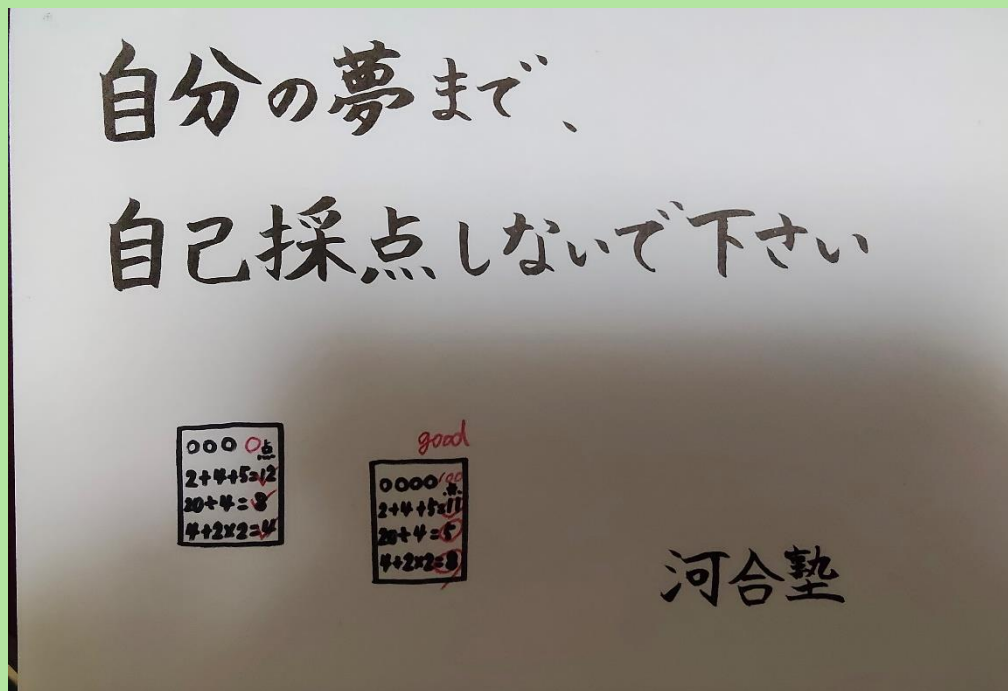 自分の夢まで、
自己採点しないで下さい
○○○ ○点
2+4+5=12
20÷4=8
4+2×2=4
good
○○○○100点
2+4+5=11
20÷4=5
4+2×2=8
河合塾